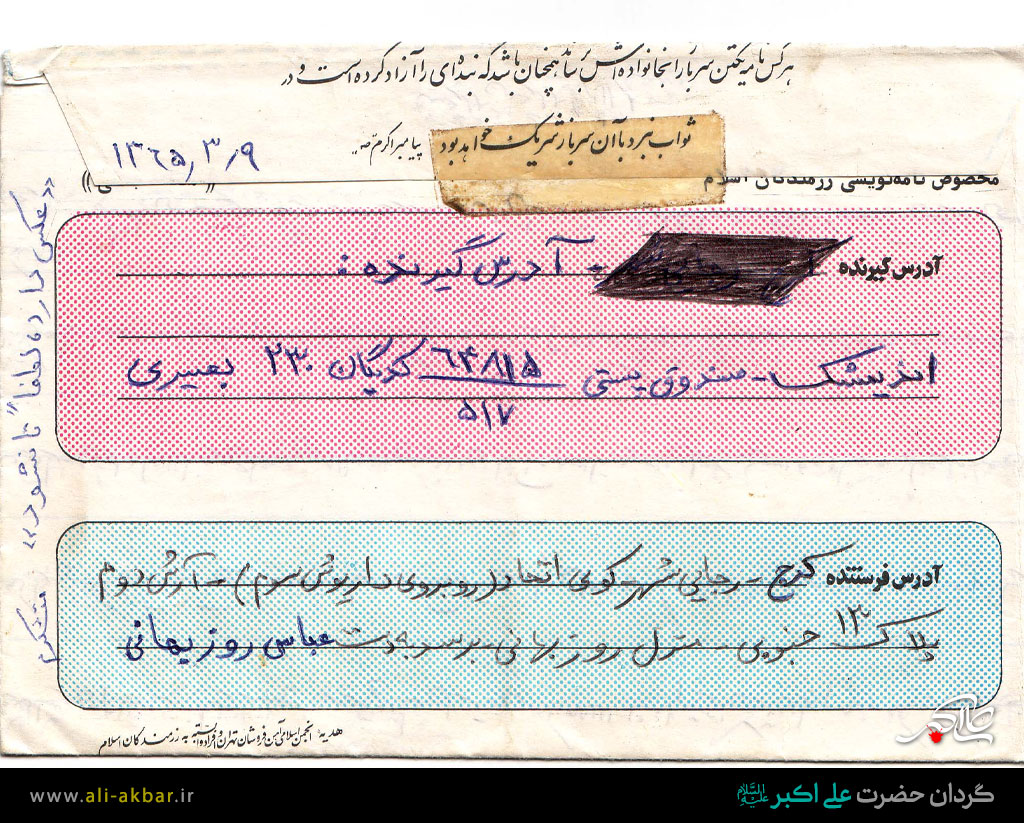 هر کس نامه یکتن سرباز را بخانواده‌اش برساند همچنان باشد که بنده‌ای را آزاد کرده است و در
ثواب نبرد با آن سرباز شریک خواهد بود پیامبر اکرم «ص»
۱۳۶۵٫۳٫۹
مخصوص نامه‌نویسی رزمندگان اسلام
«عکس دارد، لطفاً تا نشود»
متشکرم
آدرس گیرنده
- آدرس گیرنده :
اندیمشک - صندوق پستی ۶۴۸۱۵/۵۱۷ گردان ۲۳۰ بعیری
آدرس فرستنده کرج - رجایی شهر - کوی اتحاد (روبروی داریوش سوم) - آرش دوم
پلاک ۱۳ جنوبی - منزل روزبهانی - برسد بدست عباس روزبهانی
هدیهٔ انجمن اسلامی آهن فروشان تهران و افراد وابسته به رزمندگان اسلام
علی‌اکبر
www.ali-akbar.ir
گردان حضرت علی اکبر علیه‌السلام